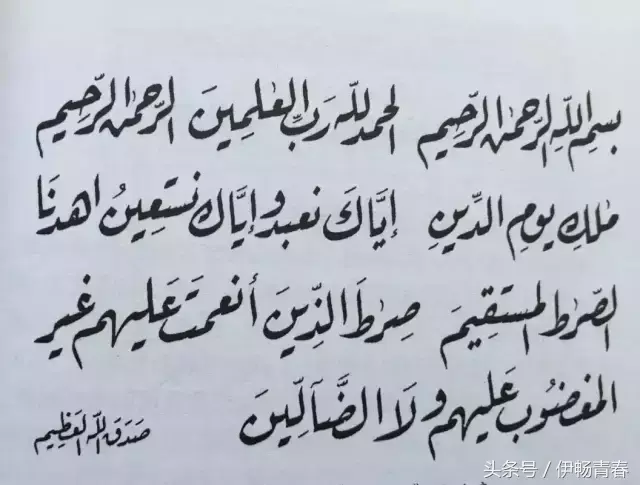 بسم الله الرحمٰن الرحيم الحمد لله رَبِّ العٰلمِينَ الرّحمٰن الرّحِيم
مٰلكِ يومِ الدِّينِ إِيَّاكَ نعبد وإيَّاك نستعِينُ اهدنَا
الصّرٰط المستقِيمَ صِرٰطَ الذِّينَ أنعمتَ عَليهم غير
المغضُوبِ عَليهم ولَا الضَّآلِّينَ
صَدَقَ اللّٰه العَظِيم
头条号 / 伊畅青春